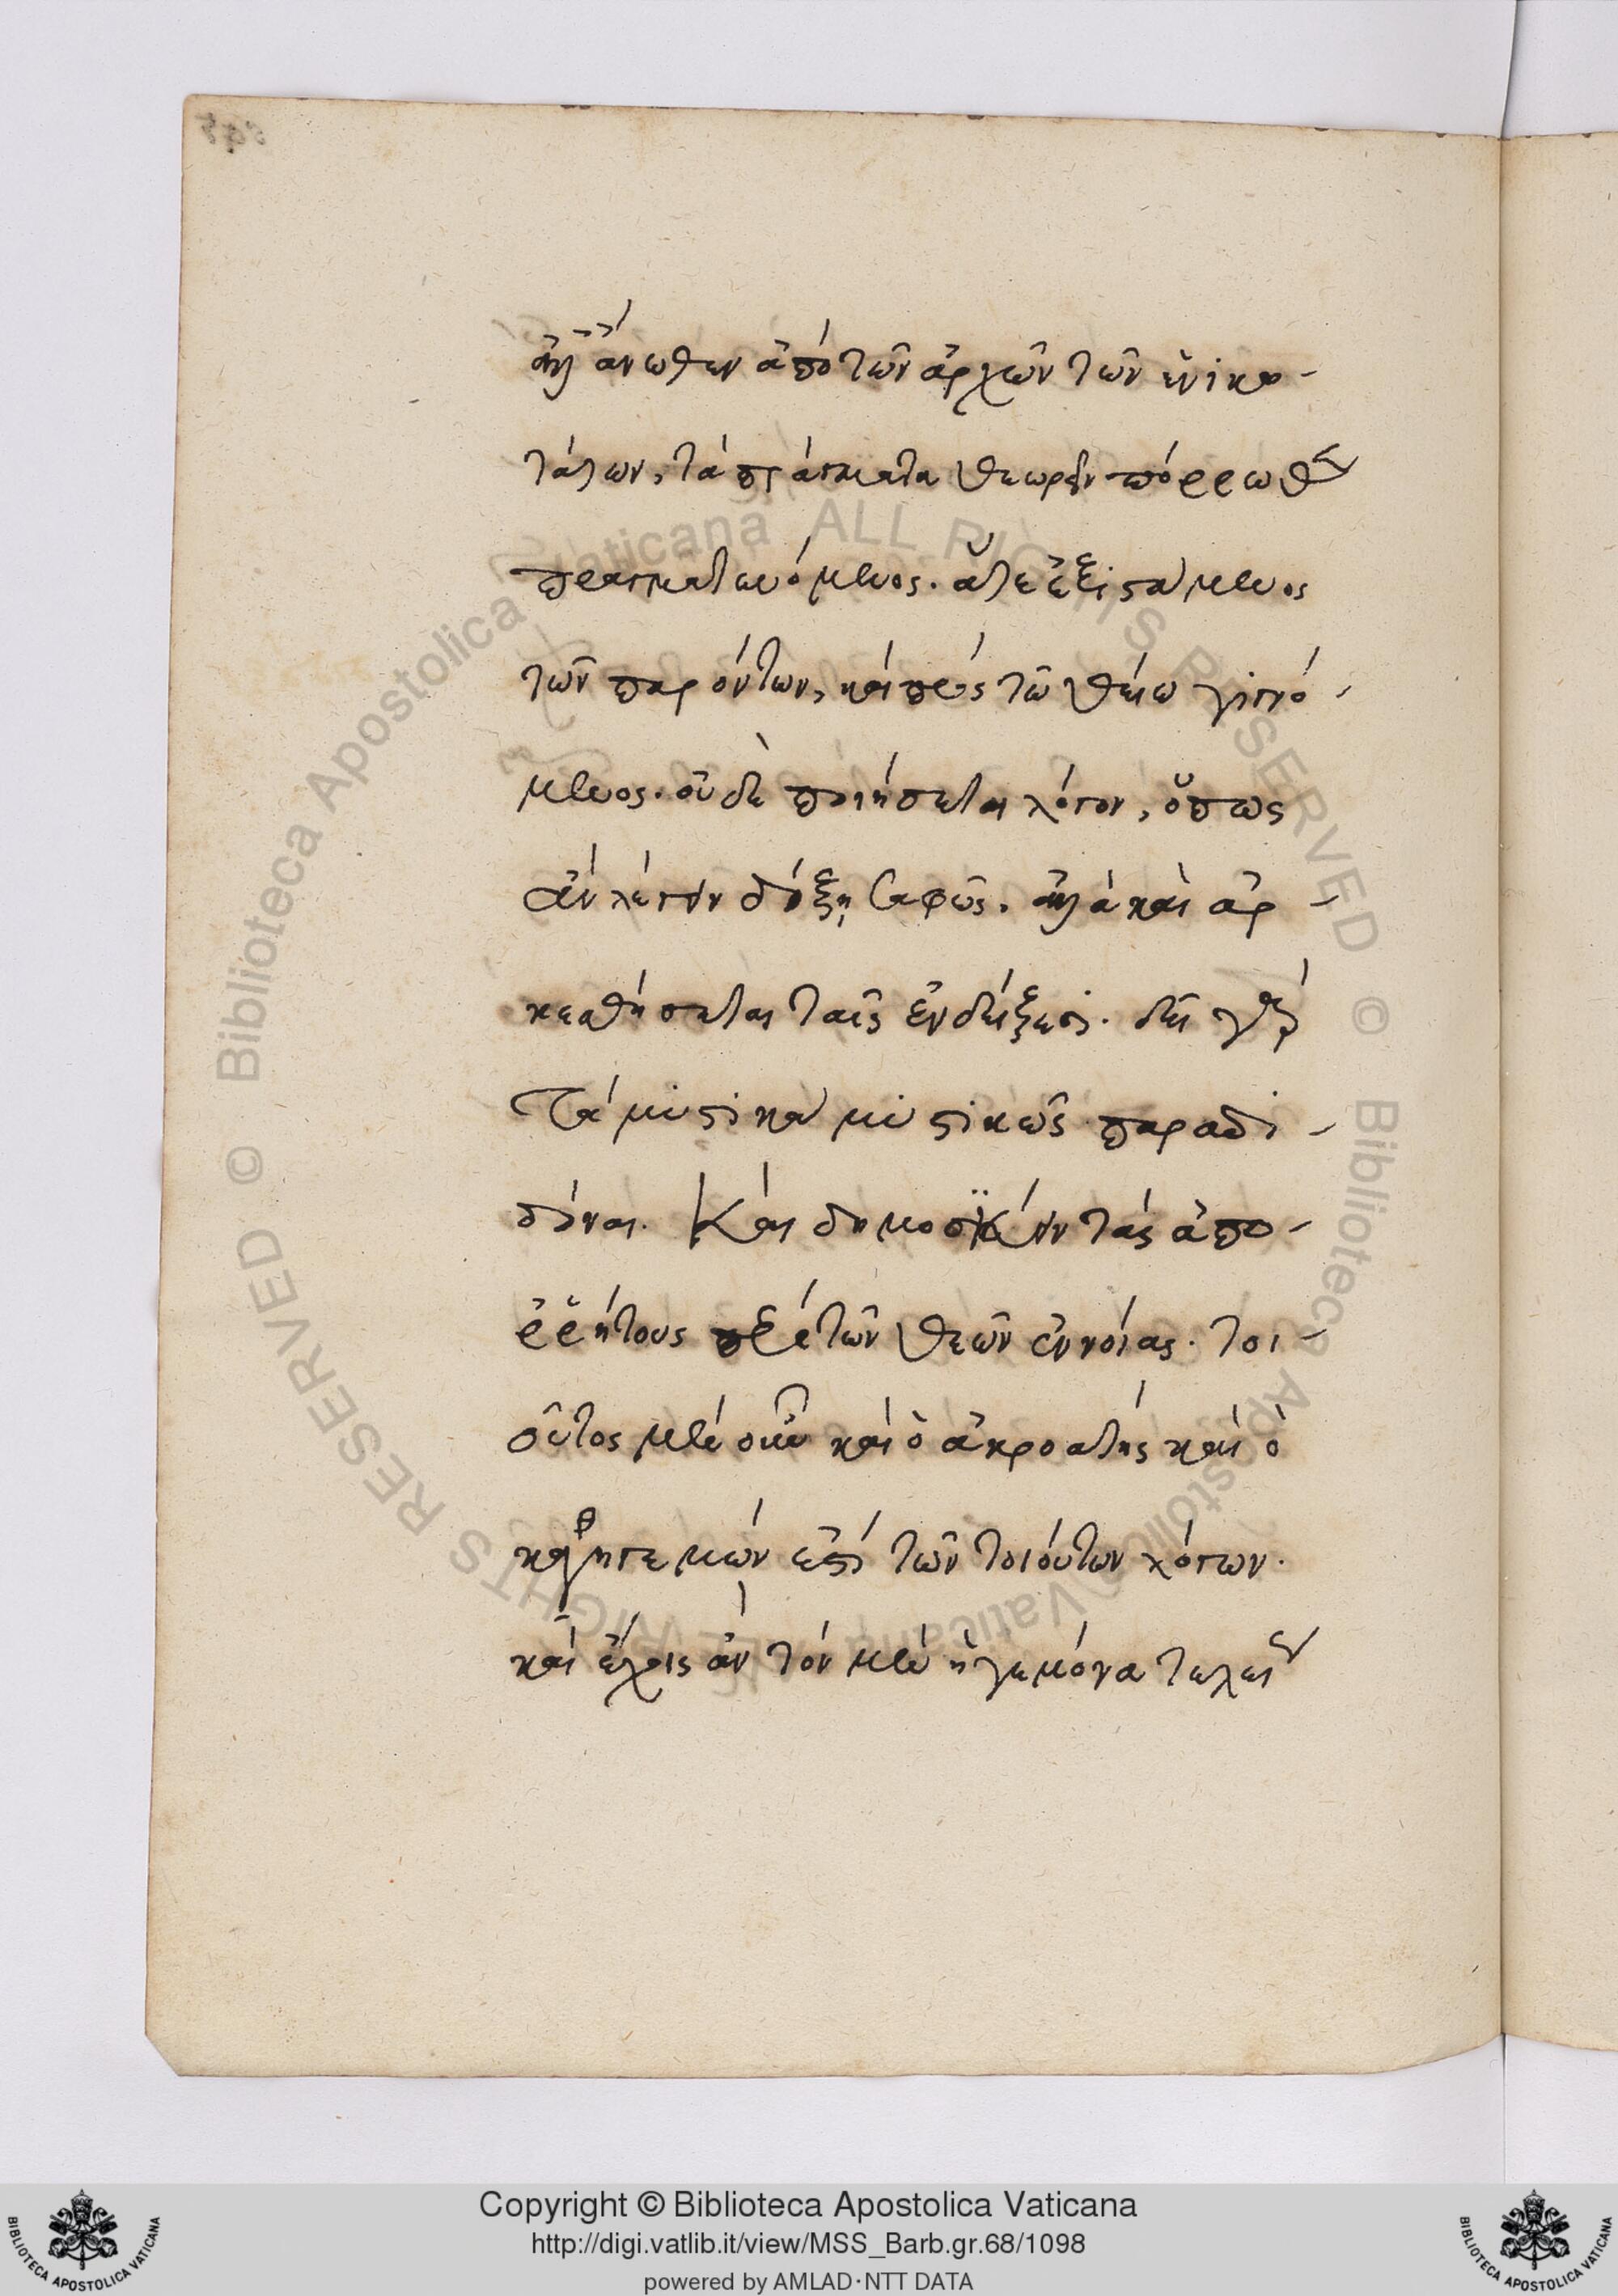 ἀλλ' ἄνωθεν ἀπὸ τῶν ἀρχῶν τῶν ἑνικω-
τάτων, τὰ πράγματα θεωρεῖν πόρρωθεν
πραγματευόμενος. ἅτε ἐξιστάμενος
τῶν παρόντων, καὶ πρὸς τῶ θείω γιγνό-
μενος. οὐδὲ ποιήσεται λόγον, ὅπως
ἂν λέγειν δόξῃ σαφῶς. ἀλλὰ καὶ ἀρ-
κεσθήσεται ταῖς ἐνδείξεσι. δεῖ γὰρ
τὰ μυστικὰ μυστικῶς παραδι-
δόναι. Καὶ μὴ δημοσιεύειν τὰς ἀπο-
ρρήτους περὶ τῶν θεῶν ἐννοίας. τοι-
οῦτος μὲν οὖν καὶ ὁ ἀκροατὴς καὶ ὁ
καθηγεμών ἐστι τῶν τοιούτων λόγων.
καὶ ἔχοις ἂν τὸν μὲν ἡγεμόνα τελειν
Copyright © Biblioteca Apostolica Vaticana
http://digi.vatlib.it/view/MSS_Barb.gr.68/1098
powered by AMLAD·NTT DATA
BIBLIOTECA APOSTOLICA VATICANA
BIBLIOTECA APOSTOLICA VATICANA
© Biblioteca Apostolica Vaticana ALL RIGHTS RESERVED
© Biblioteca Apostolica Vaticana ALL RIGHTS RESERVED